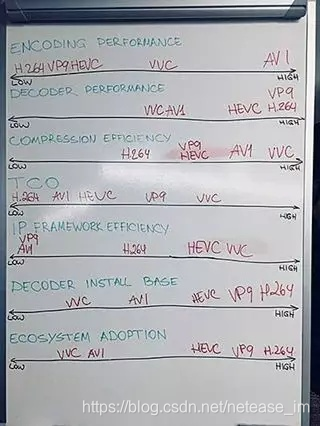 ENCODING PERFORMANCE
H.264 VP9 HEVC VVC AV1
LOW HIGH
DECODER PERFORMANCE
VP9
VVC AV1 HEVC H.264
LOW HIGH
COMPRESSION EFFICIENCY
VP9
H.264 HEVC AV1 VVC
LOW HIGH
TCO
H.264 AV1 HEVC VP9 VVC
LOW HIGH
IP FRAMEWORK EFFICIENCY
VP9
AV1 H.264 HEVC VVC
LOW HIGH
DECODER INSTALL BASE
VVC AV1 HEVC VP9 H.264
LOW HIGH
ECOSYSTEM ADOPTION
VVC AV1 HEVC VP9 H.264
LOW HIGH
https://blog.csdn.net/netease_im